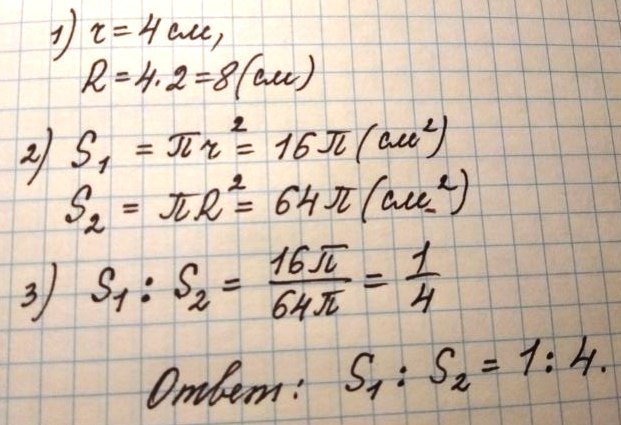 1) r = 4 см,
R = 4 · 2 = 8 (см)
2) S₁ = πr² = 16π (см²)
S₂ = πR² = 64π (см²)
3) S₁ : S₂ = 16π/64π = 1/4
Ответ: S₁ : S₂ = 1 : 4.